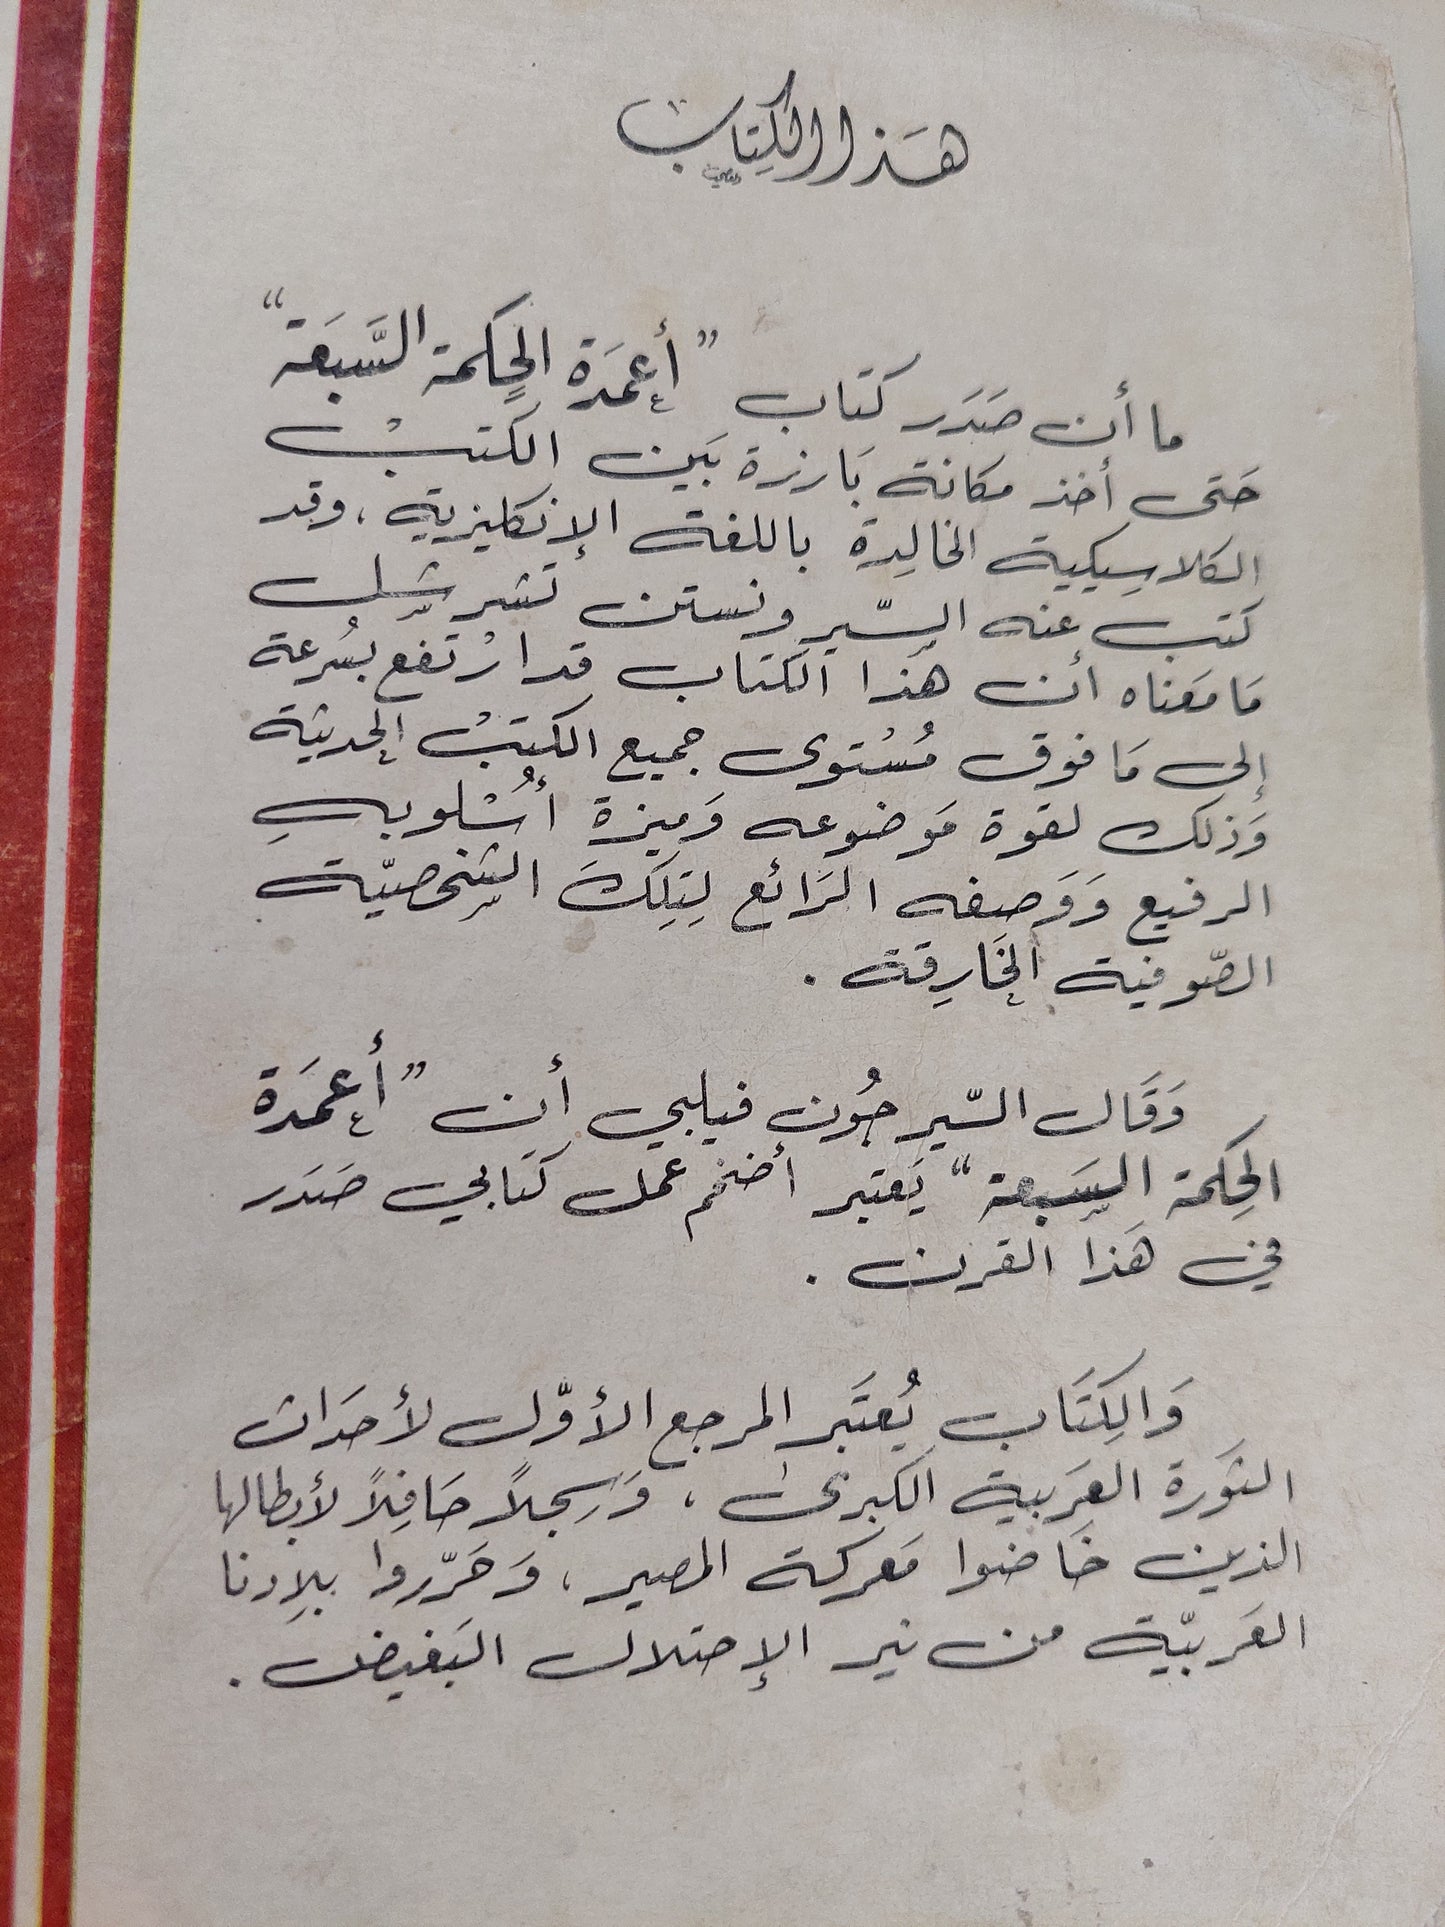 هَذا الكِتاب
ما أن صَدَر كتاب ”أعمَدَة الحِكمة السَّبعَة“
حَتى أخذ مكانة بَارزة بَين الكتبْ
الكلاسِيكية الخالِدة باللغة الإنكليزية، وقد
كتب عنه السّير ونستن تشرشل
مَا مَعناه أن هَذا الكتاب قد ارْتفع بسُرعة
إلى مَا فوق مُسْتوى جميع الكتبْ الحديثة
وَذلك لقوة مَوضوعه وَميزة أسْلوبهِ
الرفيع وَوَصفه الرَائع لِتِلكَ الشخصيّة
الصّوفية الخَارِقة .
وَقَال السّير جُون فيلبي أن ”أعمَدَة
الحِكمة السَبعة“ يَعتبر أضخم عمل كتَابي صَدَر
في هَذا القرن .
وَالكِتَاب يُعتَبر المرجع الأوّل لأحدَاث
الثورَة العَربية الكبرى، وَسِجلاً حَافِلاً لأبطالها
الذين خَاضوا مَعركة المصير، وَحَرّروا بلاِدنا
العَربيّة من نير الإحتلال البَغيض .